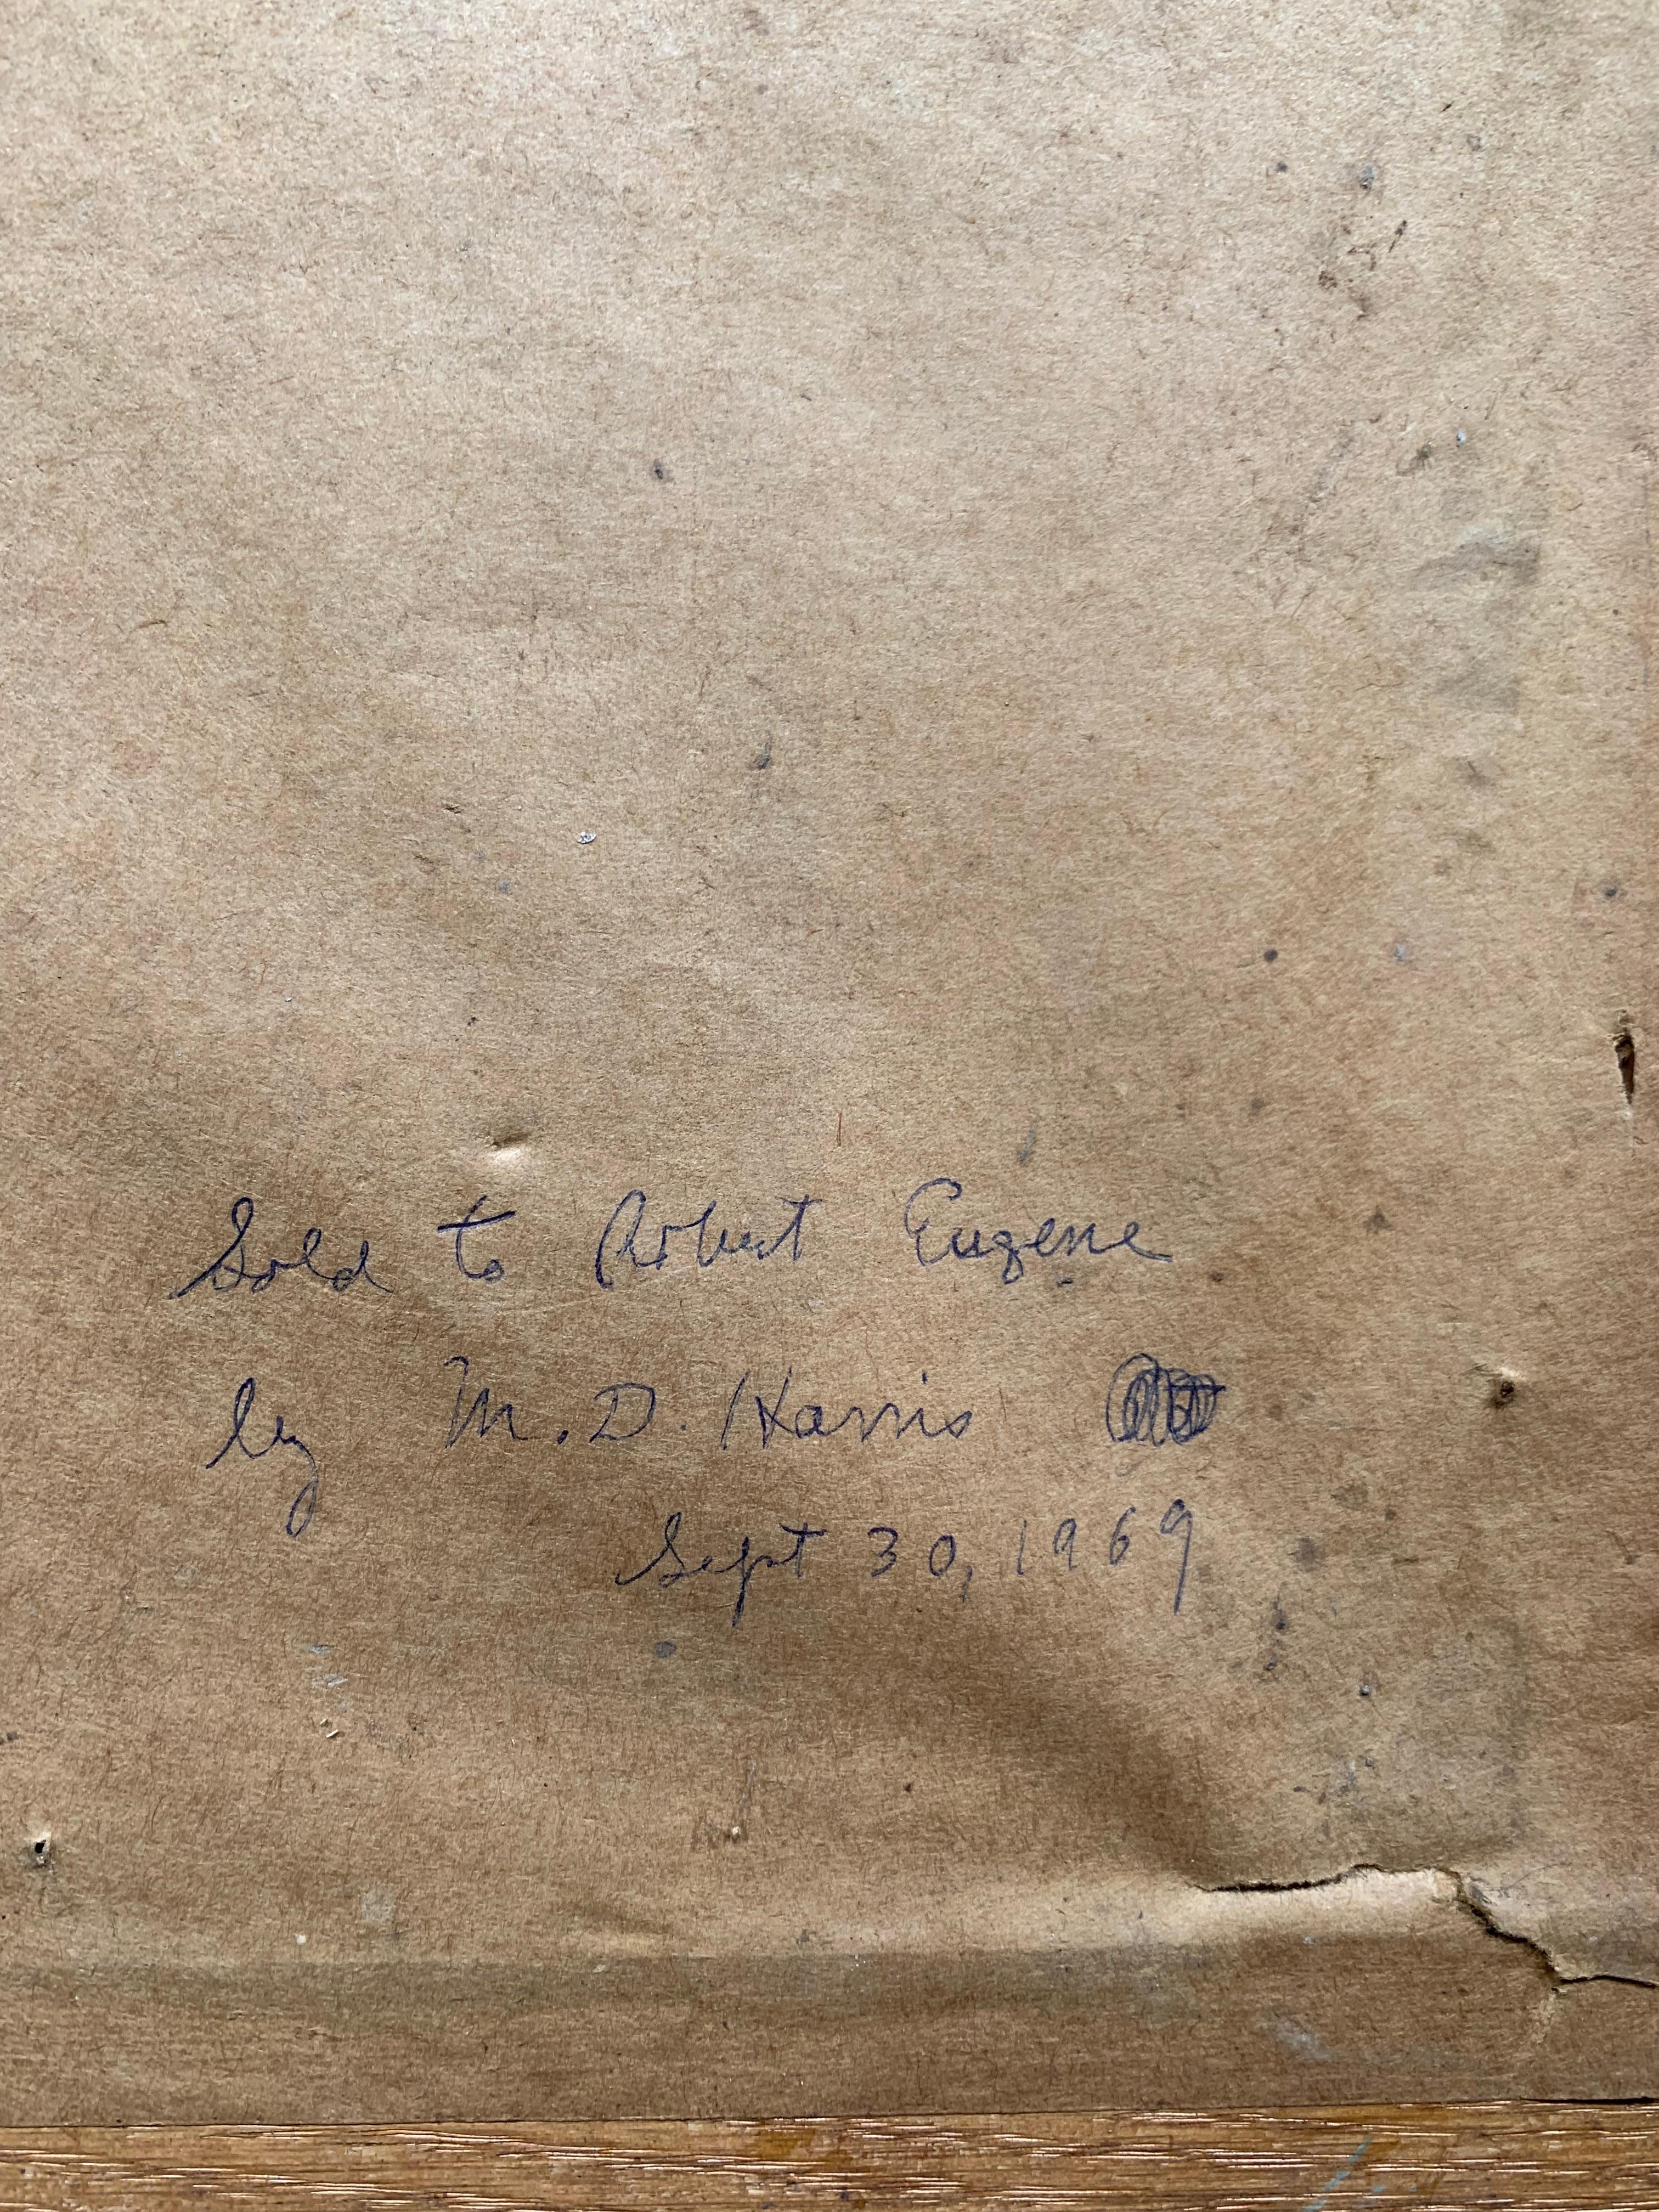 Sold to Robert Eugene
by M. D. Harris
Sept 30, 1969